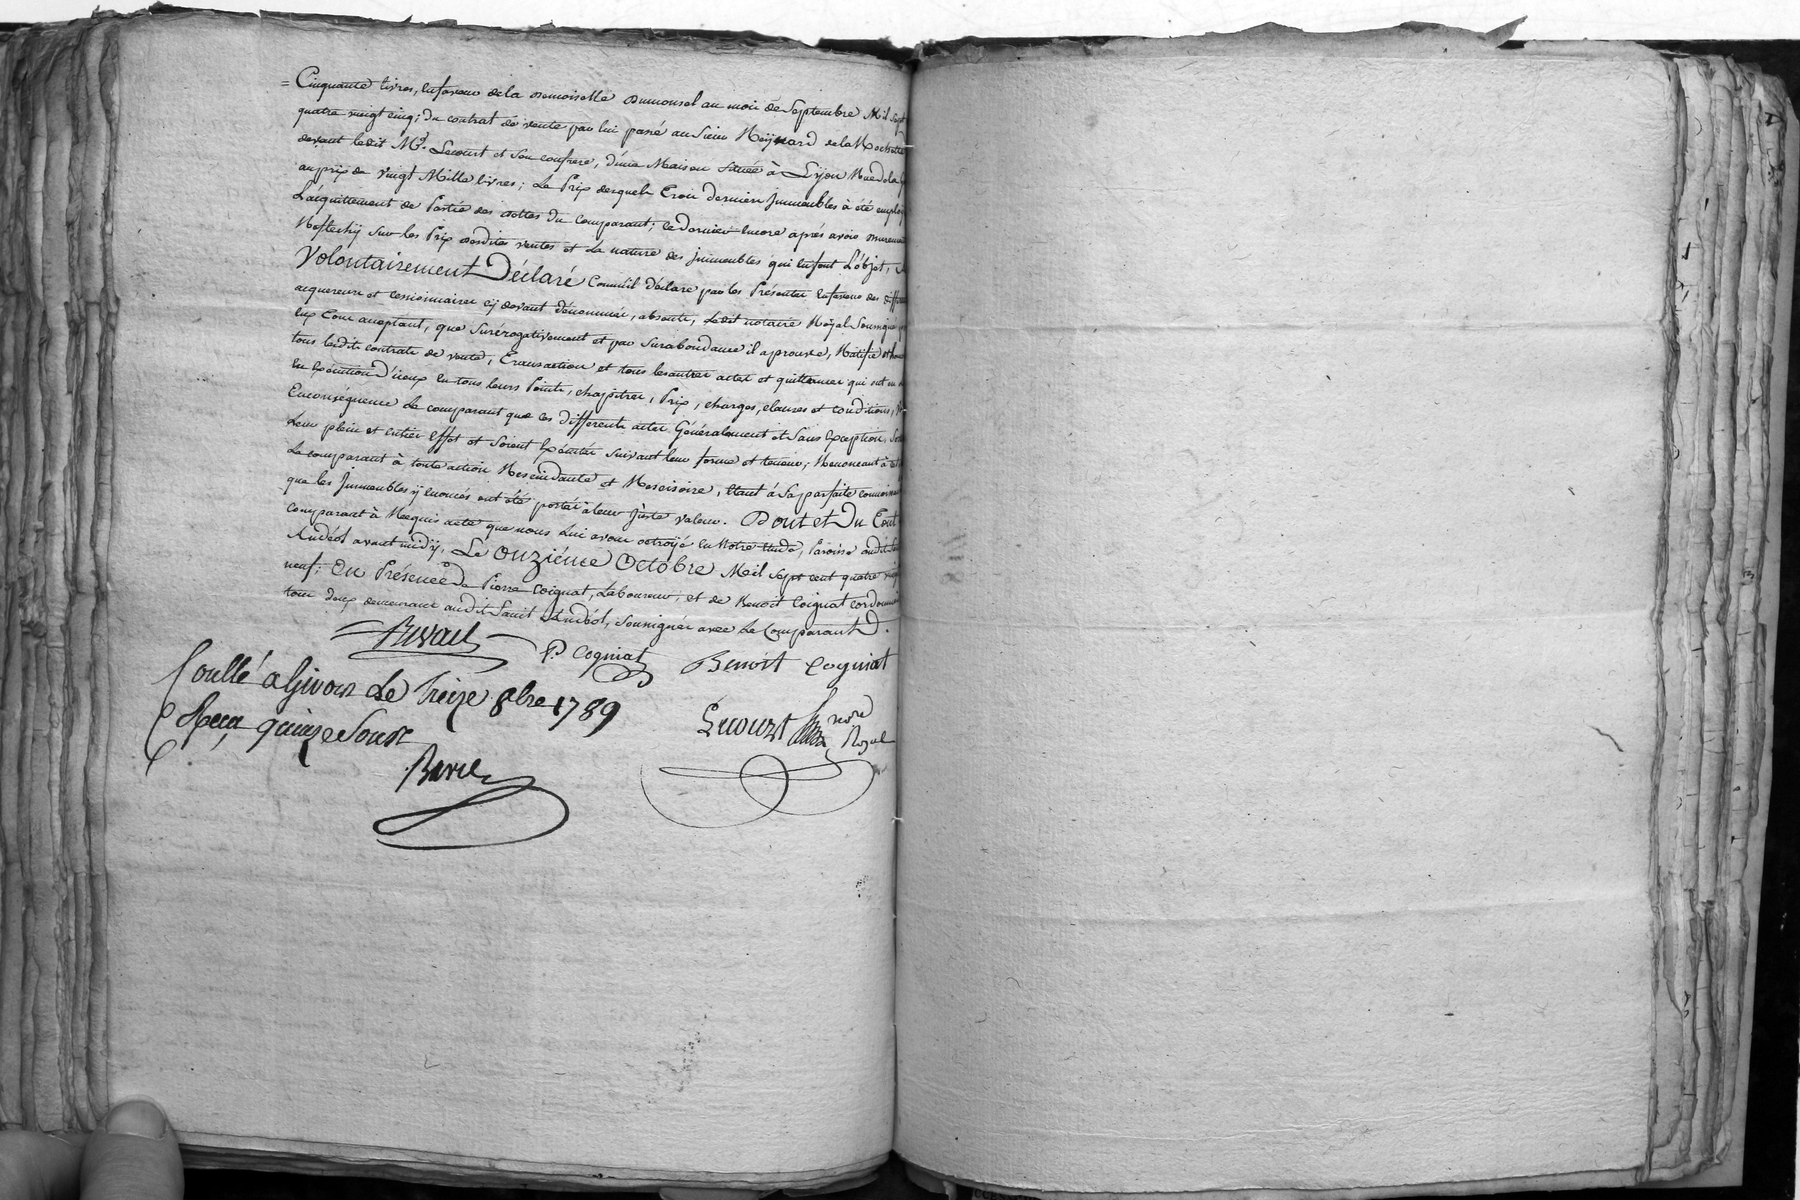 = Cinquante livres, en faveur de la demoiselle Dumonsel au mois de Septembre Mil Sept
quatre vingt cinq; du contrat de vente par lui passé au Sieur Reÿnard de la Rochette
devant ledit Me. Lecourt et Son confrere, d'une Maison Située à Lyon Rue de la
au prix de vingt Mille livres; Le Prix desquels Trois derniers Immeubles à été emploÿ
L'acquittement de Partie des dettes du comparant; ce dernier encore après avoir murement
Reflechÿ Sur les Prix desdites ventes et La nature des Immeubles qui en font L'objet,
Volontairement Déclaré Comme il déclare par les Présentes en faveur des différens
acquereurs et cessionnaires cÿ devant dénommés, absents, Ledit notaire Roÿal Soussigné
eux Ceux acceptant, que Surérogativement et par Surabondance il aprouve, Ratifie et
tous lesdits contrats de vente, Transaction et tous les autres actes et quittances qui ont
en Exécution d'iceux en tous leurs Points, chapitres, Prix, charges, clauses et conditions,
En conséquence Le comparant que ces différents actes Généralement et Sans Exception,
Leur plein et entier Effet et Soient Exécutés Suivant leur forme et teneur; Renonçant à
Le comparant à toute action Rescindante et Rescisoire, Etant à Sa parfaite connoissance
que les Immeubles ÿ énoncés ont été portés à leur Juste valeur. Dont et Du Tout
comparant à Requis acte que nous Lui avons octroÿé en Notre Etude, Paroisse dudit Saint
Andéol avant midÿ, Le onziéme Octobre Mil Sept cent quatre vingt
neuf; En Présence de Pierre Coignat, Laboureur, et de Benoit Coignat cordonnier
tous deux demeurant audit Saint Andéol, Soussignés avec Le Comparant.
Rivail
P. Cogniat
Benoit Cogniat
Coullé a Givors Le Treize 8bre 1789
Reçu quinze Sous
Lecourt
nore
Royal